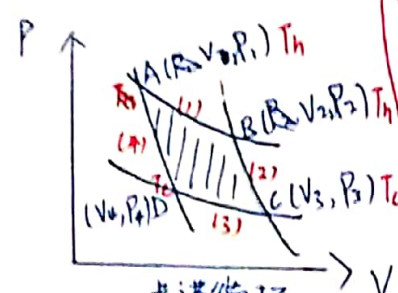 P
A(V₁,P₁) Th
(1)
B(V2,P2) Th
(4)
(2)
Tc
C(V3,P3) Tc
(V4,P4)D
(3)
V